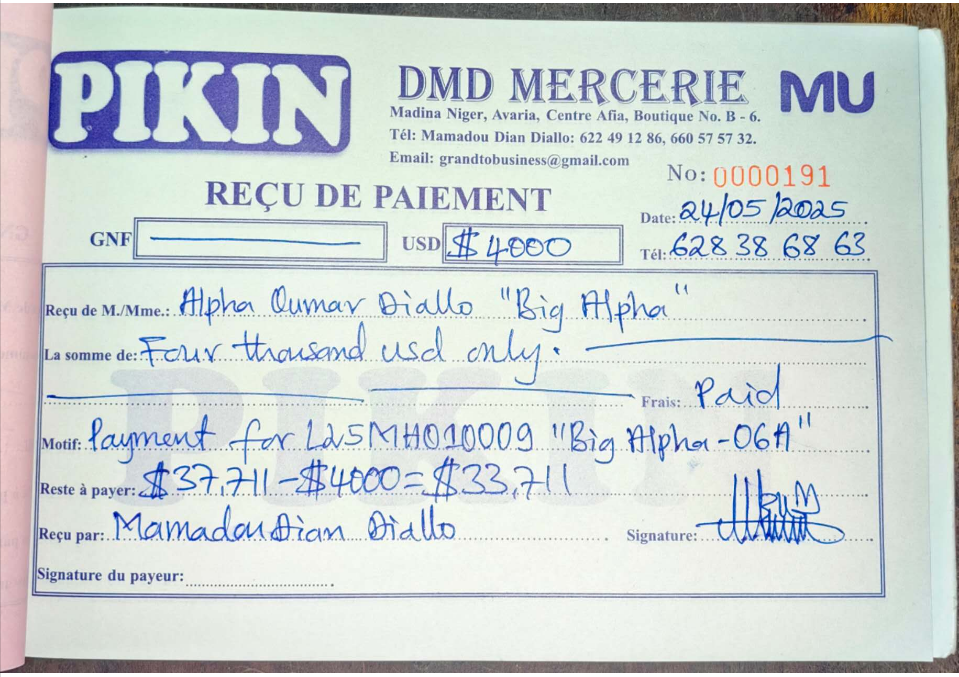 PIKIN
DMD MERCERIE
MU
Madina Niger, Avaria, Centre Afia, Boutique No. B - 6.
Tél: Mamadou Dian Diallo: 622 49 12 86, 660 57 57 32.
Email: grandtobusiness@gmail.com
No: 0000191
REÇU DE PAIEMENT
Date: 24/05/2025
GNF
USD $4000
Tél: 628 38 68 63
Reçu de M./Mme.: Alpha Oumar Diallo "Big Alpha"
La somme de: Four thousand usd only.
Frais: Paid
Motif: Payment for L25MH010009 "Big Alpha-06A"
Reste à payer: $37,711-$4000=$33,711
Reçu par: Mamadou Dian Diallo
Signature:
Signature du payeur:
PIKIN